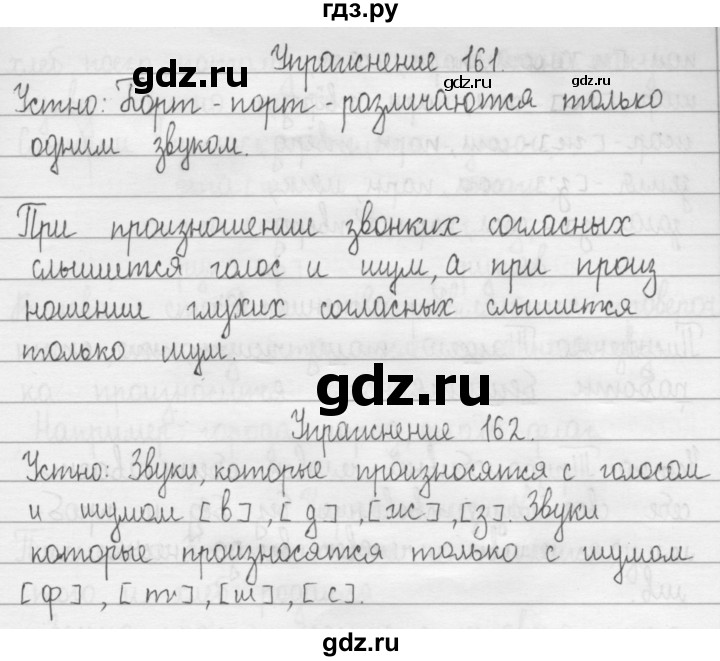 гдз.ру
Упражнение 161
gdz.ru
gdz.ru
Устно: Борт - порт - различаются только
одним звуком.
При произношении звонких согласных
слышется голос и шум, а при произ
ношении глухих согласных слышится
только шум.
gdz.ru
Упражнение 162.
Устно: Звуки, которые произносятся с голосом
и шумом в], [д], [ж], [з] Звуки
которые произносятся только с шумом
[ф], [т], [ш], [с].
gdz.ru